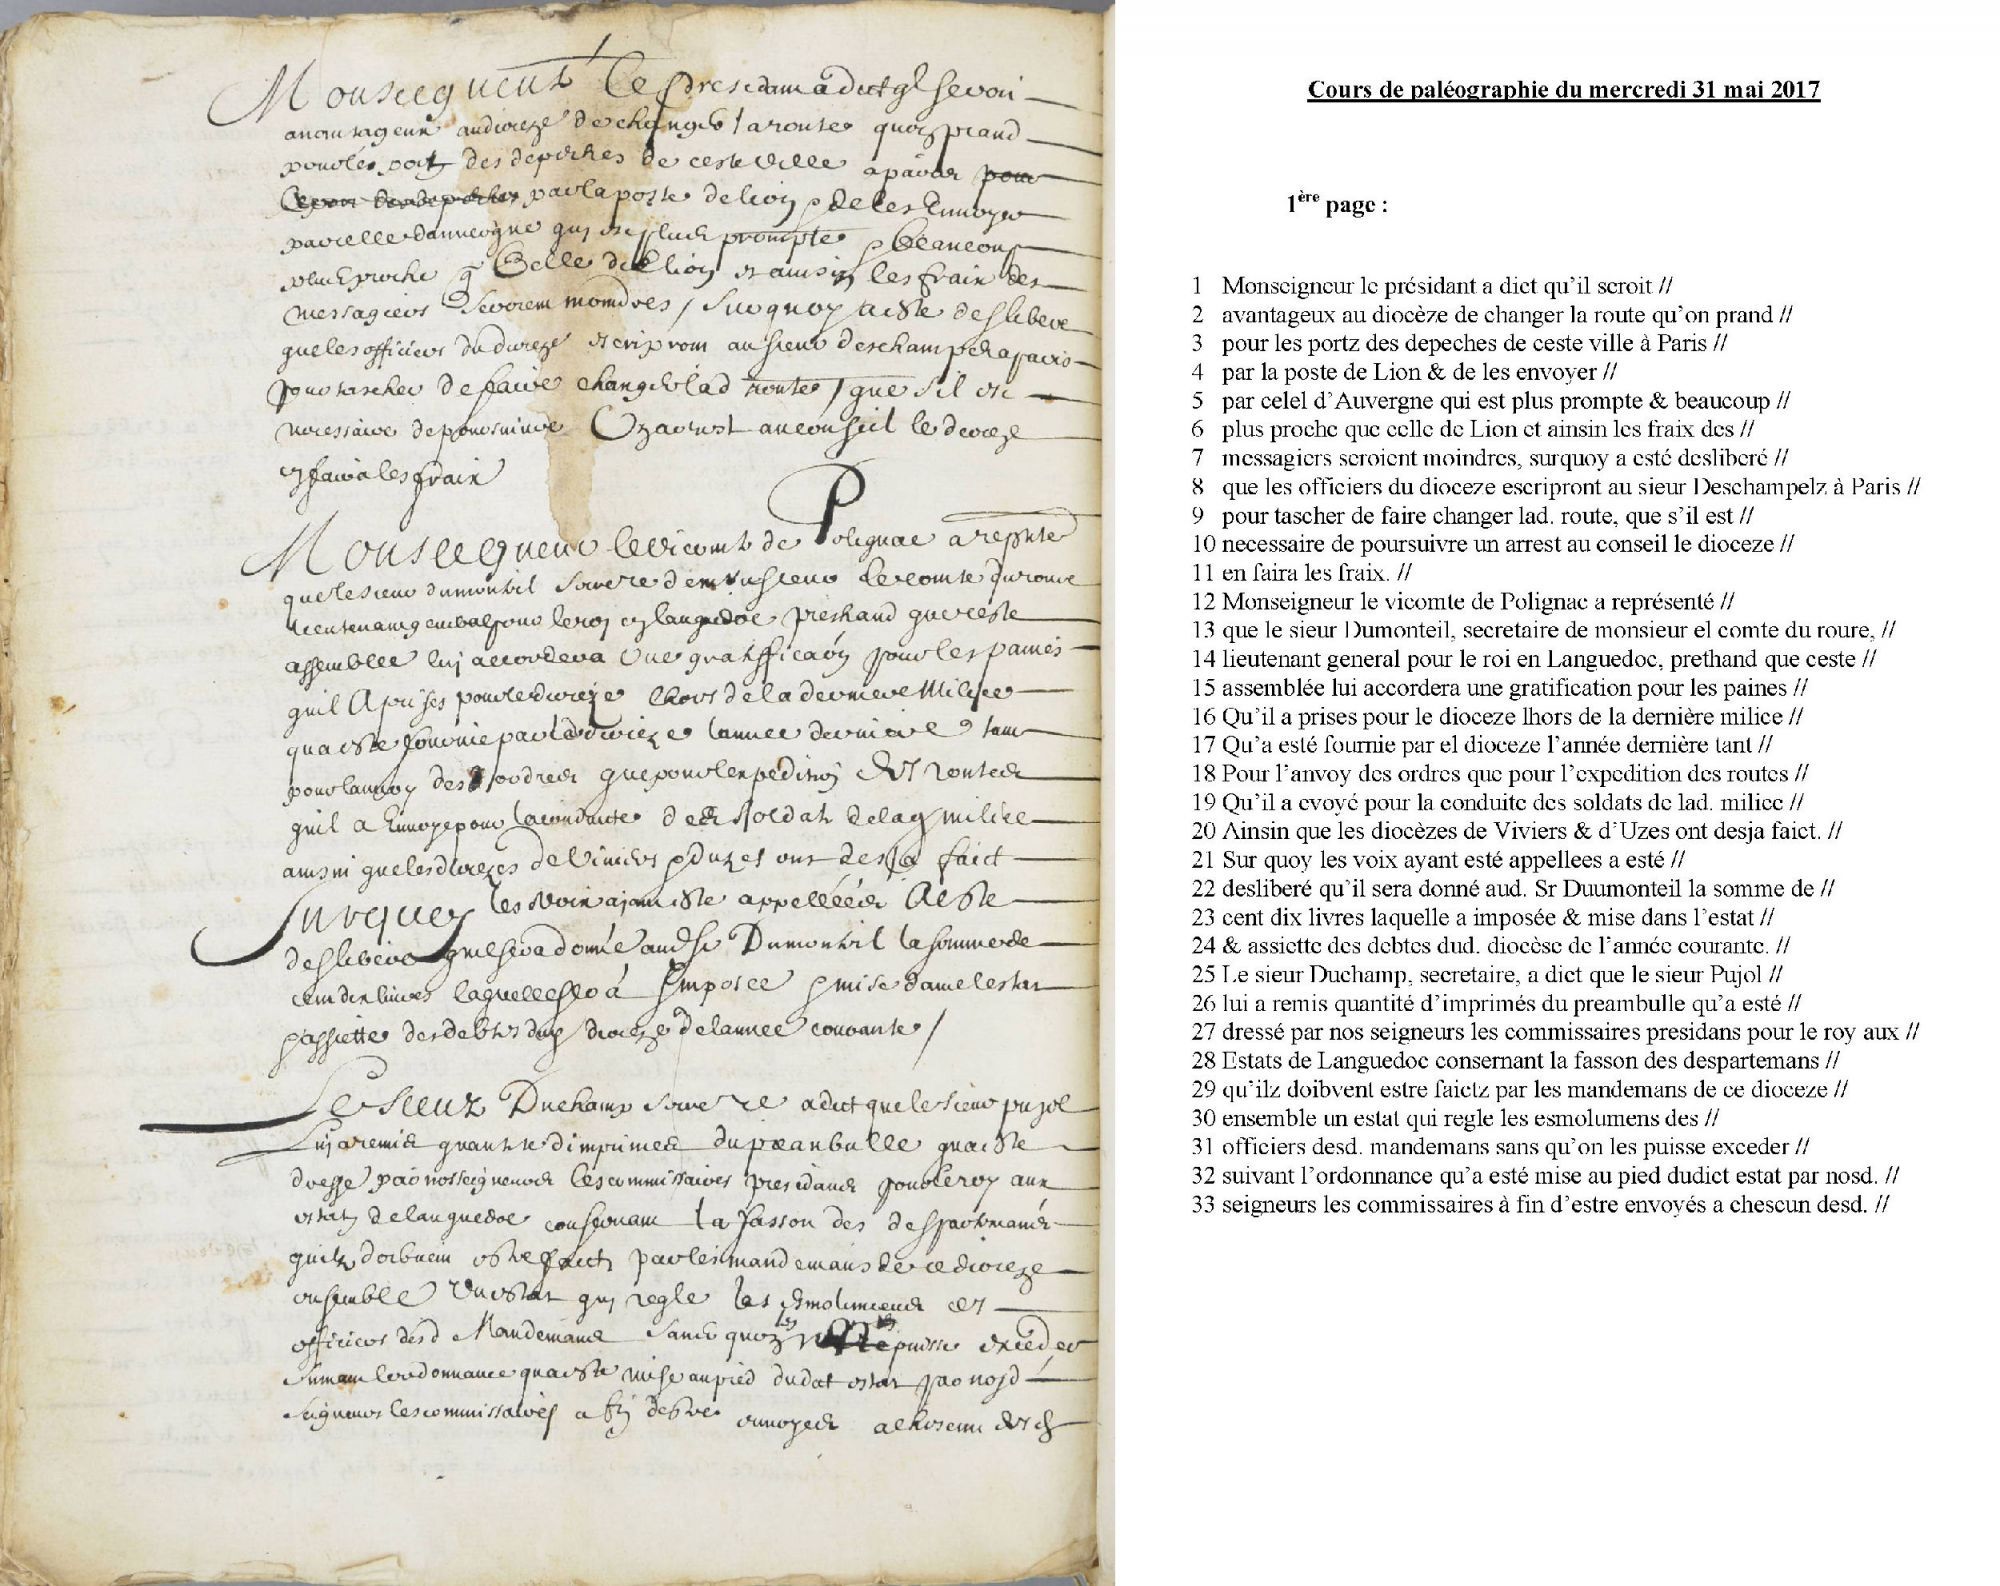 Monseigneur le presidant a dict ql seroit
avantageux au dioceze de changer la route quon prand
pour les portz des depeches de ceste ville a paris pour
par la poste de lion & de les Envoyer
par celle dauvergne quy est plus prompte & beaucoup
plus proche q Celle de lion et ainsin les fraix des
messagiers seroient moindres / surquoy a esté deslibere
que les officiers du dioceze escripront au sieur deschampelz a paris
pour tascher de faire changer lad route / que sil est
necessaire de poursuivre un arrest au conseil le dioceze
en faira les fraix
Monseigneur le vicomte de Polignac a repnté
que le sieur dumonteil secre re de monsieur le comte du roure
lieutenant general pour le roy en languedoc prethand que ceste
assemblée luy accordera une gratiffica on pour les paines
quil A prises pour le dioceze lhors de la derniere Milice
qua esté fournie par le dioceze lannee derniere tant
pour lanvoy des ordres que pour lexpedition des routes
quil a Envoye pour la conduitte des soldatz de lad milice
ainsin que les diocezes de Viviers & duzes ont desja faict
Surquoy les voix ayant esté appellées A esté
deslibere quil sera donné aud Sr Dumonteil la somme de
cent dix livres laquelle sera Imposee & mise dans lestat
& assiette des debtes dud dioceze de lannee courante /
Le sieur Duchamp secre re a dict que le sieur pujol
Luy a remis quantité dimprimés du preanbulle qua esté
dressé par nosseigneurs les commissaires presidans pour le roy aux
estatz de languedoc consernant la fasson des despartemans
quilz doibvent estre faictz par les mandemans de ce dioceze
ensemble Un estat quy regle les Esmolumens des
officiers desd Mandemans sans quon les puisse exceder
suivant lordonnance qua esté mise au pied dudict estat par nosd
seigneurs les commissaires a fin destre envoyés a chescun desd
Cours de paléographie du mercredi 31 mai 2017
1ère page :
1 Monseigneur le présidant a dict qu’il seroit //
2 avantageux au diocèze de changer la route qu’on prand //
3 pour les portz des depeches de ceste ville à Paris //
4 par la poste de Lion & de les envoyer //
5 par celel d’Auvergne qui est plus prompte & beaucoup //
6 plus proche que celle de Lion et ainsin les fraix des //
7 messagiers seroient moindres, surquoy a esté desliberé //
8 que les officiers du dioceze escripront au sieur Deschampelz à Paris //
9 pour tascher de faire changer lad. route, que s’il est //
10 necessaire de poursuivre un arrest au conseil le dioceze //
11 en faira les fraix. //
12 Monseigneur le vicomte de Polignac a représenté //
13 que le sieur Dumonteil, secretaire de monsieur el comte du roure, //
14 lieutenant general pour le roi en Languedoc, prethand que ceste //
15 assemblée lui accordera une gratification pour les paines //
16 Qu’il a prises pour le dioceze lhors de la dernière milice //
17 Qu’a esté fournie par el dioceze l’année dernière tant //
18 Pour l’anvoy des ordres que pour l’expedition des routes //
19 Qu’il a evoyé pour la conduite des soldats de lad. milice //
20 Ainsin que les diocèzes de Viviers & d’Uzes ont desja faict. //
21 Sur quoy les voix ayant esté appellees a esté //
22 desliberé qu’il sera donné aud. Sr Duumonteil la somme de //
23 cent dix livres laquelle a imposée & mise dans l’estat //
24 & assiette des debtes dud. diocèse de l’année courante. //
25 Le sieur Duchamp, secretaire, a dict que le sieur Pujol //
26 lui a remis quantité d’imprimés du preambulle qu’a esté //
27 dressé par nos seigneurs les commissaires presidans pour le roy aux //
28 Estats de Languedoc consernant la fasson des despartemans //
29 qu’ilz doibvent estre faictz par les mandemans de ce dioceze //
30 ensemble un estat qui regle les esmolumens des //
31 officiers desd. mandemans sans qu’on les puisse exceder //
32 suivant l’ordonnance qu’a esté mise au pied dudict estat par nosd. //
33 seigneurs les commissaires à fin d’estre envoyés a chescun desd. //